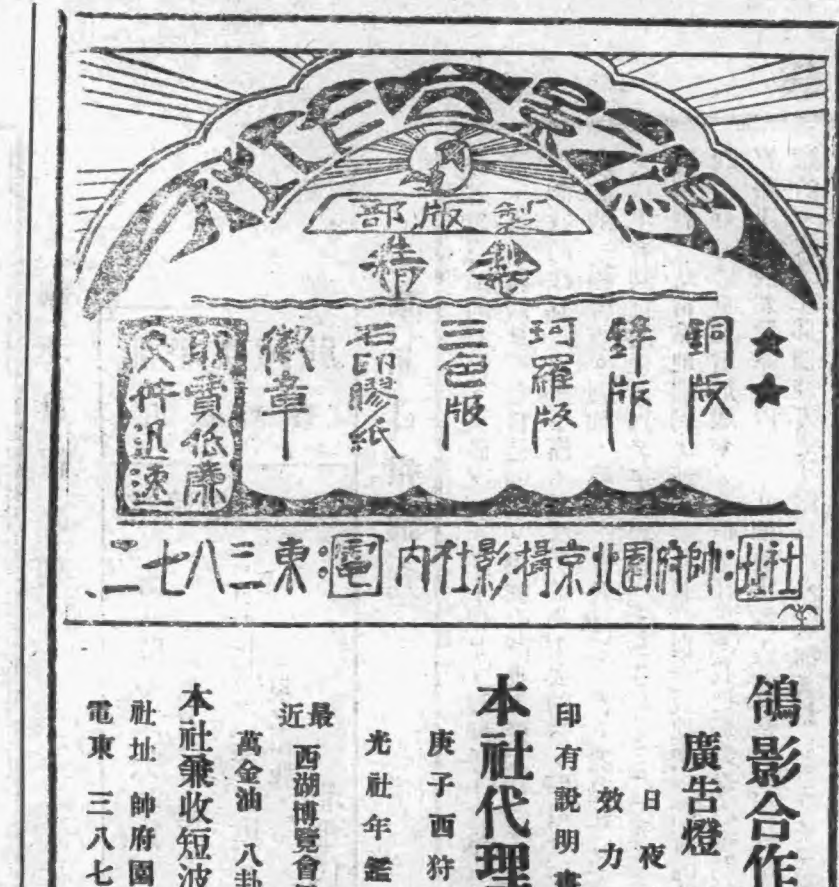 鴿影合作社
製版部
精製
銅版
鋅版
珂羅版
三色版
石印膠紙
徽章
取費低廉
交件迅速
社址:帥府園北京攝影社內 電:東三八七二
鴿影合作
廣告燈
日夜
效力
印有說明書
本社代理
庚子西狩
光社年鑑
最近 西湖博覽會
萬金油 八卦
本社兼收短波
社址 帥府園
電東 三八七